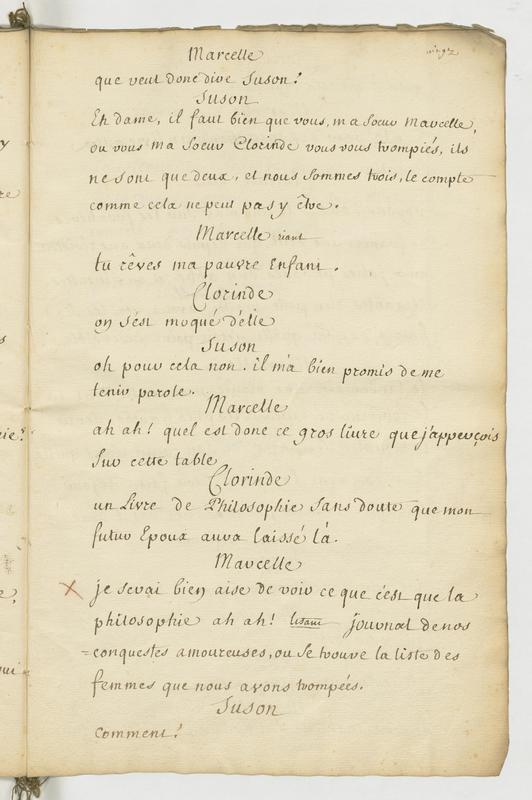 Marcelle
que veut donc dire Suson?
Suson
Eh dame, il faut bien que vous, ma Soeur Marcelle,
ou vous ma Soeur Clorinde vous vous trompiés, ils
ne sont que deux, et nous sommes trois, le compte
comme cela ne peut pas y être.
Marcelle riant
tu rêves ma pauvre Enfant.
Clorinde
on s'est moqué d'elle
Suson
oh pour cela non. il m'a bien promis de me
tenir parole.
Marcelle
ah ah! quel est donc ce gros livre que j'apperçois
sur cette table
Clorinde
un Livre de Philosophie sans doute que mon
futur Epoux aura laissé là.
Marcelle
je serai bien aise de voir ce que c'est que la
philosophie ah ah! lisant journal de nos
=conquestes amoureuses, ou se trouve la liste des
femmes que nous avons trompées.
Suson
comment?